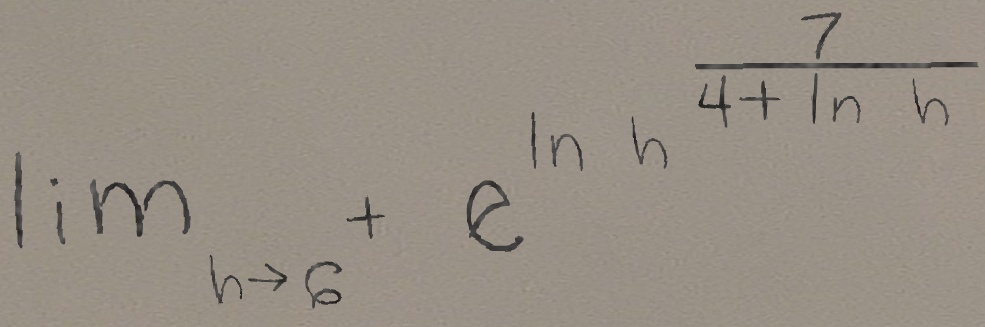 \lim_{h \to 6^+} e^{\ln h^{\frac{7}{4 + \ln h}}}